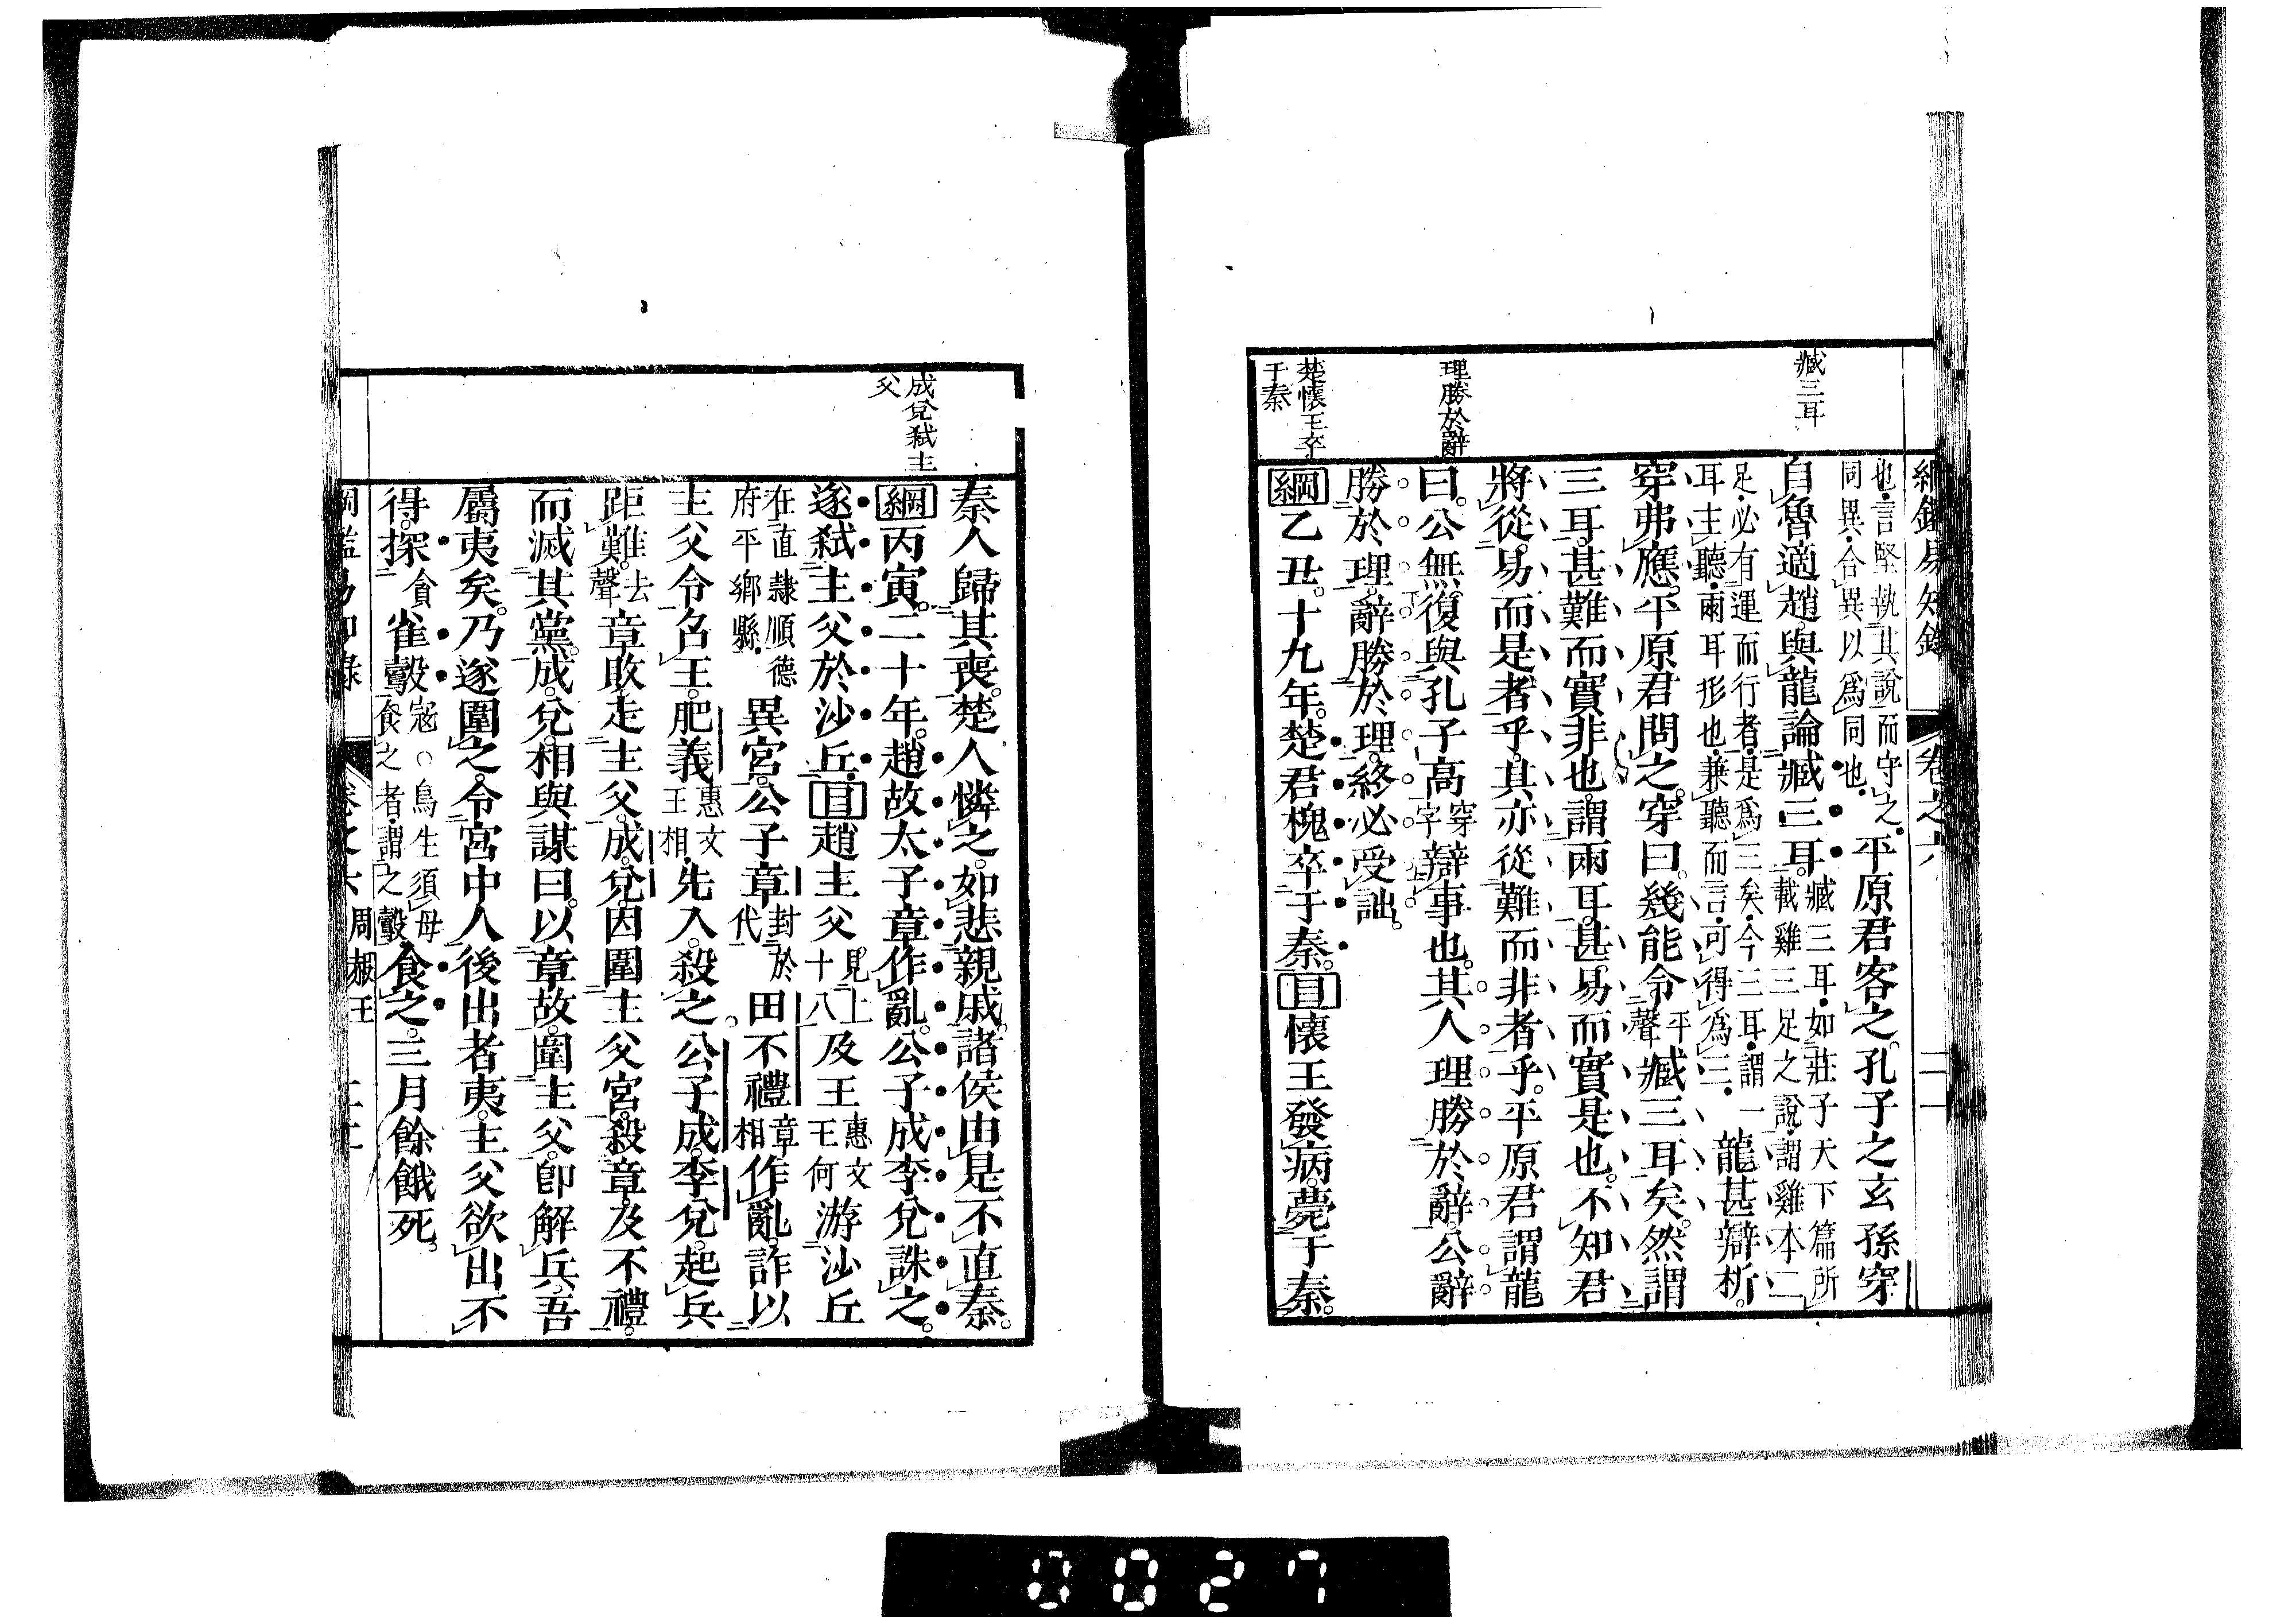 綱鑑易知錄 卷之六 二一
臧三耳
理勝於辭
楚懷王卒
于秦
也言堅執其說而守之
同異合異以爲同也平原君客之孔子之玄孫穿
自魯適趙與龍論臧三耳臧三耳如莊子天下篇所
載雞三足之說謂雞本二
足必有運而行者是爲三矣今三耳謂一
耳主聽兩耳形也兼聽而言可得爲三龍甚辯析
穿弗應平原君問之穿曰幾能令平聲臧三耳矣然謂
三耳甚難而實非也謂兩耳甚易而實是也不知君
將從易而是者乎其亦從難而非者乎平原君謂龍
曰公無復與孔子高穿字辯事也其人理勝於辭公辭
勝於理辭勝於理終必受詘
綱乙丑十九年楚君槐卒于秦目懷王發病薨于秦
成兌弒主
父
秦人歸其喪楚人憐之如悲親戚諸侯由是不直秦
綱丙寅二十年趙故太子章作亂公子成李兌誅之
遂弒主父於沙丘目趙主父見上十八及王惠文王何游沙丘
在直隸順德
府平鄉縣異宮公子章封於代田不禮章相作亂詐以
主父令召王肥義惠文王相先入殺之公子成李兌起兵
距難去聲章敗走主父成兌因圍主父宮殺章及不禮
而滅其黨成兌相與謀曰以章故圍主父卽解兵吾
屬夷矣乃遂圍之令宮中人後出者夷主父欲出不
得探貪雀鷇寇○鳥生須母
食之者謂之鷇食之三月餘餓死
綱鑑易知錄 卷之六 周赧王 二二
0027